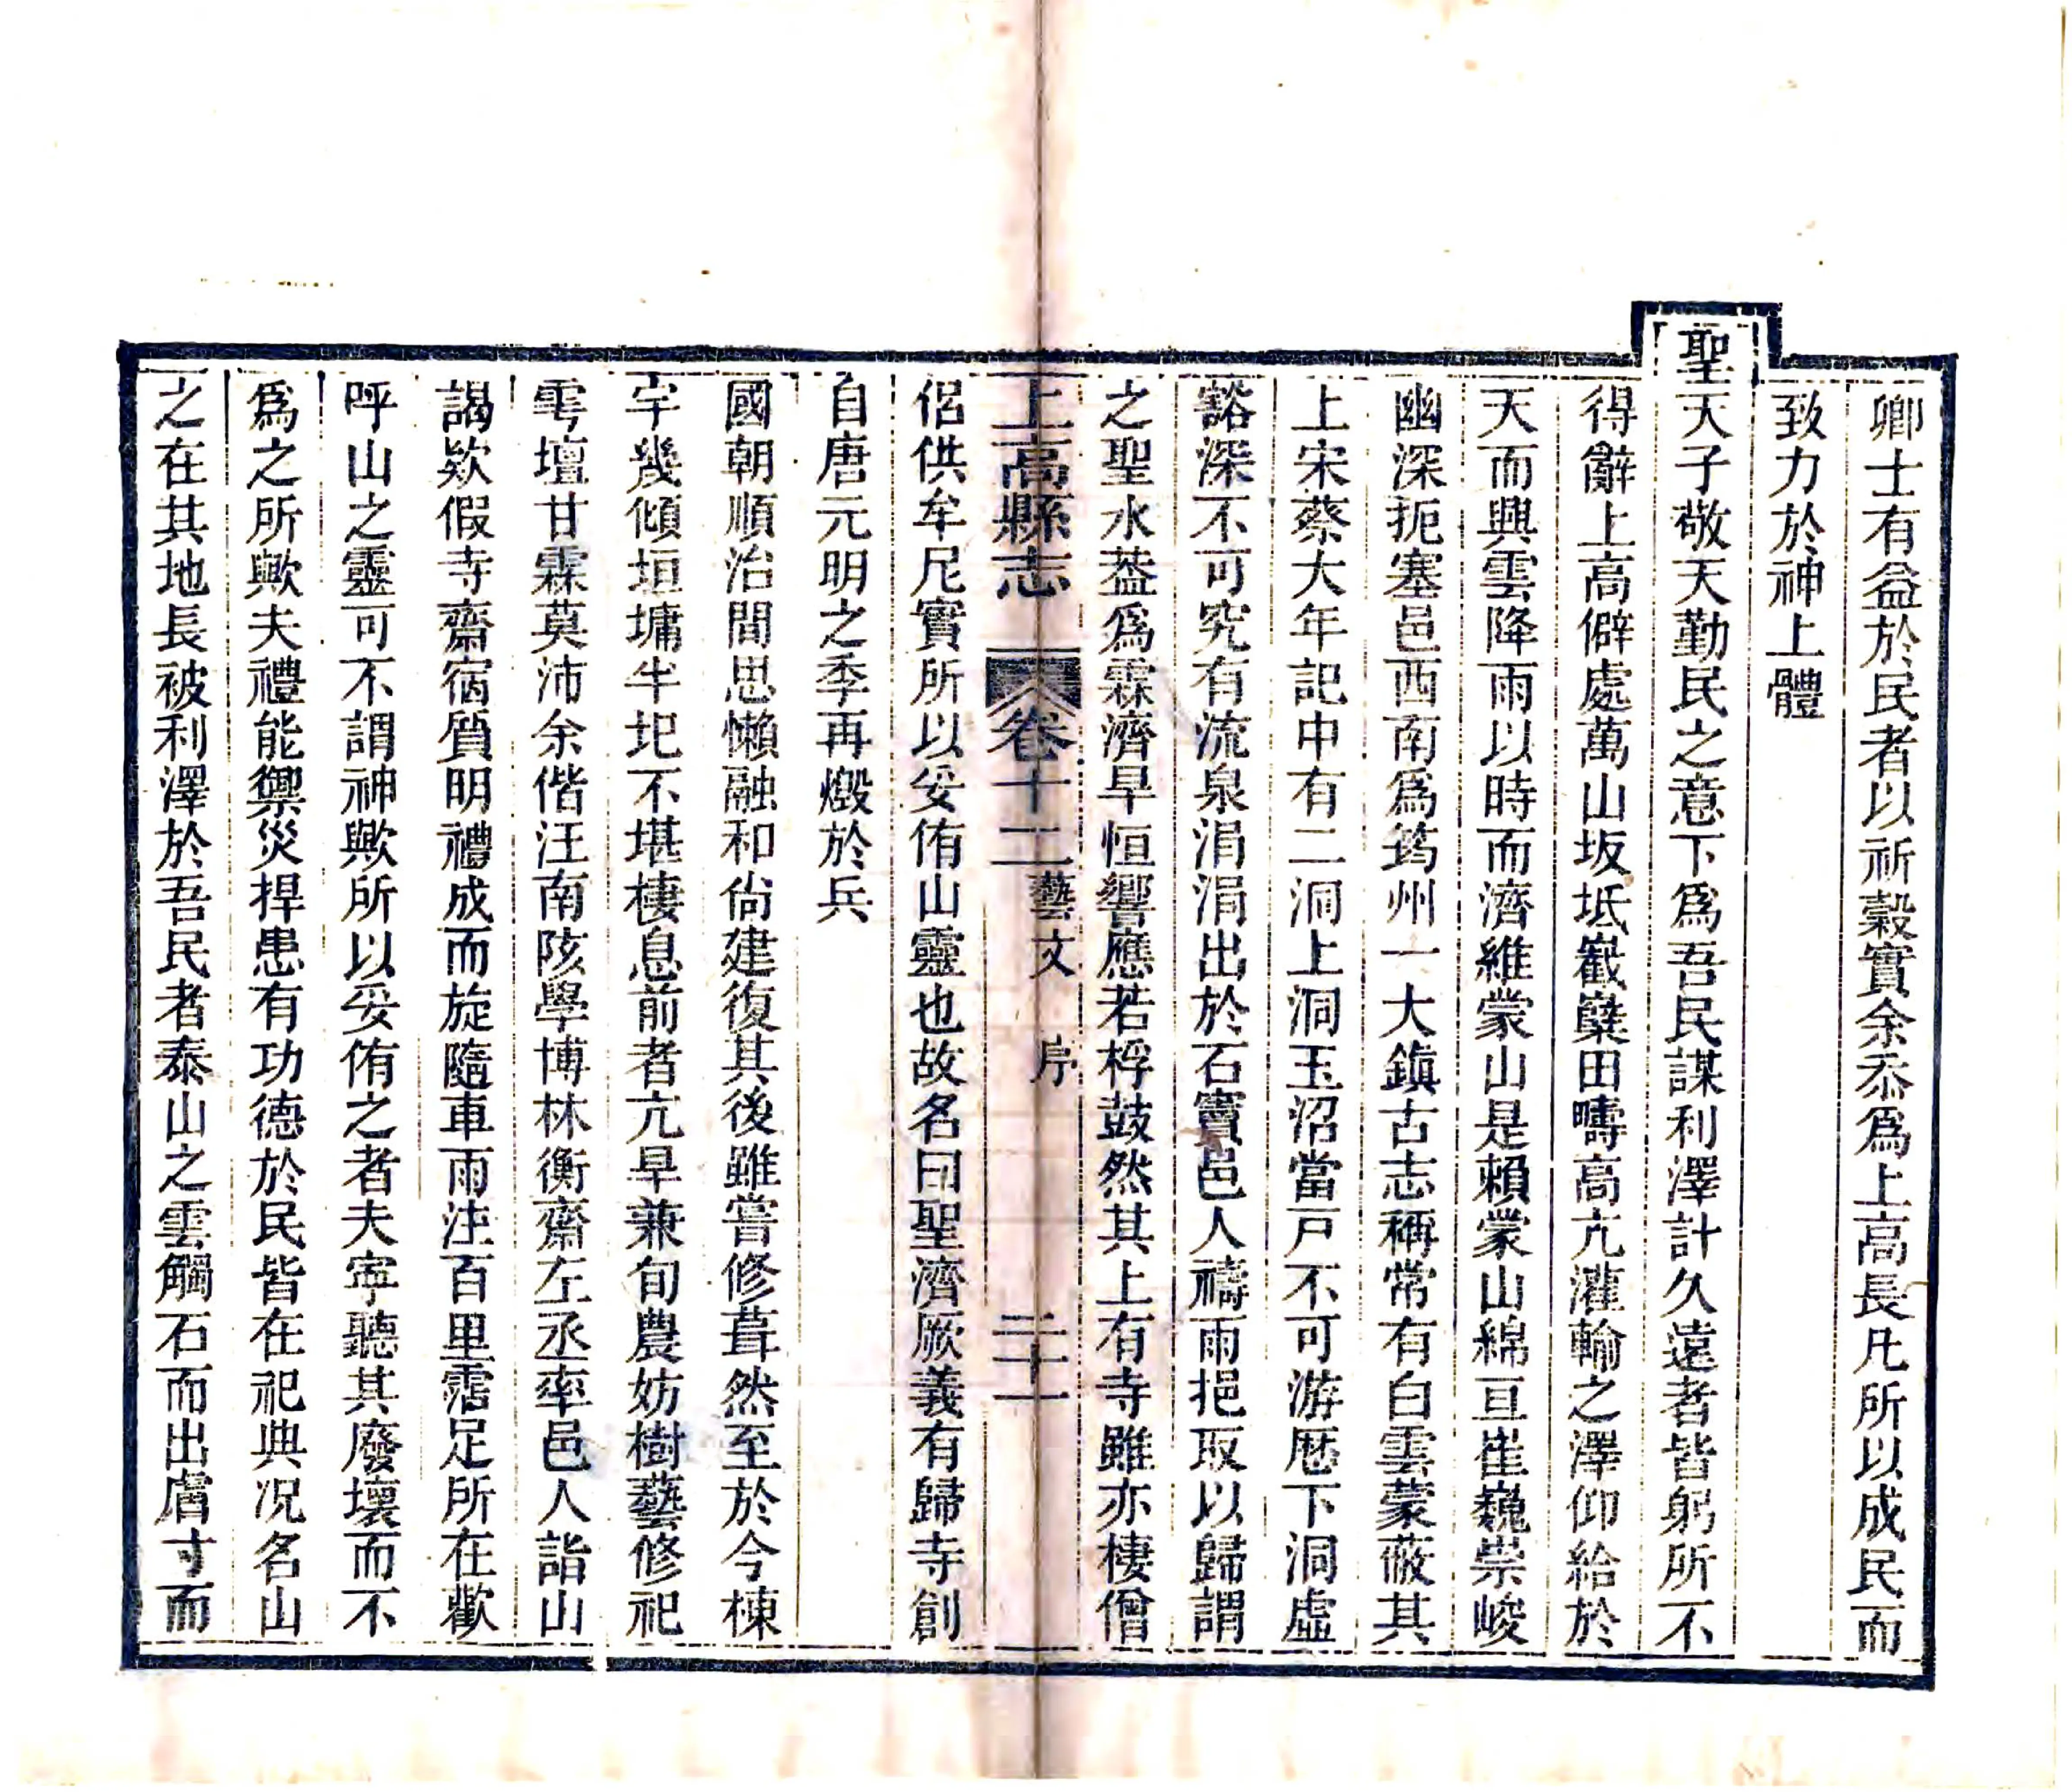 卿士有益於民者以祈穀實余忝爲上高長凡所以成民而
致力於神上體
聖天子敬天勤民之意下爲吾民謀利澤計久遠者皆躬所不
得辭上高僻處萬山坂坻巀嶭田疇高亢灌輸之澤仰給於
天而興雲降雨以時而濟維蒙山是賴蒙山綿亘崔巍崇峻
幽深扼塞邑西南爲筠州一大鎭古志稱常有白雲蒙蔽其
上宋蔡大年記中有二洞上洞玉沼當戸不可游厯下洞虛
豁深不可究有流泉涓涓出於石竇邑人禱雨挹取以歸謂
之聖水葢爲霖濟旱恒響應若桴鼓然其上有寺雖亦棲僧
上高縣志 卷十二 藝文 序 二十一
侶供牟尼實所以妥侑山靈也故名曰聖濟厥義有歸寺創
自唐元明之季再燬於兵
國朝順治間思懶融和尙建復其後雖嘗修葺然至於今棟
宇幾傾垣墉半圯不堪棲息前者亢旱兼旬農妨樹藝修祀
雩壇甘霖莫沛余偕汪南陔學博林衡齋左丞率邑人詣山
謁欵假寺齋宿質明禮成而旋隨車雨注百里霑足所在歡
呼山之靈可不謂神歟所以妥侑之者夫寧聽其廢壞而不
爲之所歟夫禮能禦災捍患有功德於民皆在祀典况名山
之在其地長被利澤於吾民者泰山之雲觸石而出膚寸而